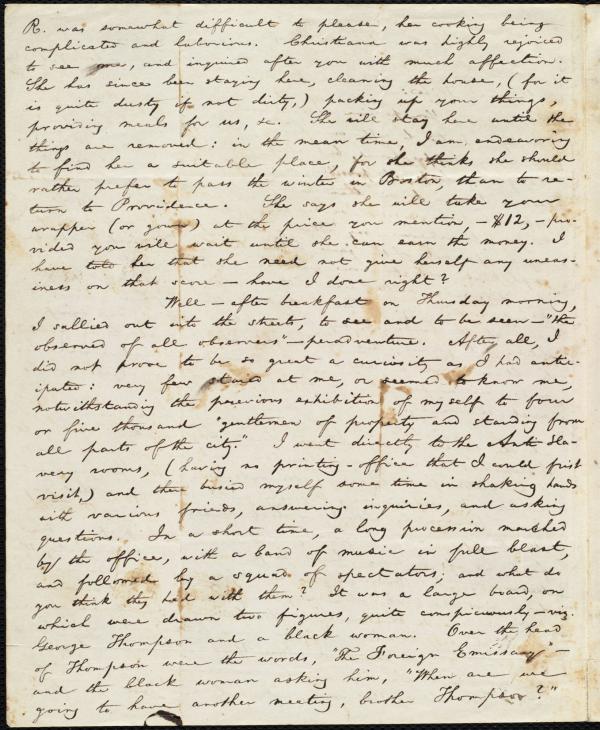 R. was somewhat difficult to please, her cooking being
complicated and laborious. Christiann was highly rejoiced
to see me, and inquired after you with much affection.
She has since been staying here, cleaning the house, (for it
is quite dusty if not dirty,) packing up your things,
providing meals for us, &c. She will stay here until the
things are removed: in the mean time, I am endeavoring
to find her a suitable place, for she thinks she should
rather prefer to pass the winter in Boston, than to re-
turn to Providence. She says she will take your
wrapper (or gown) at the price you mention, — $12, — pro-
vided you will wait until she can earn the money. I
have told her that she need not give herself any uneas-
iness on that score — have I done right?
Well — after breakfast on Thursday morning,
I sallied out into the streets, to see and to be seen — "the
observed of all observers" — peradventure. After all, I
did not prove to be so great a curiosity as I had antic-
ipated: very few stared at me, or seemed to know me,
notwithstanding the previous exhibition of myself to four
or five thousand "gentlemen of property and standing from
all parts of the city." I went directly to the Anti-Sla-
very rooms, (having no printing-office that I could first
visit,) and there busied myself some time in shaking hands
with various friends, answering inquiries, and asking
questions. In a short time, a long procession marched
by the office, with a band of music in full blast,
and followed by a squad of spectators; and what do
you think they had with them? It was a large board, on
which were drawn two figures, quite conspicuously — viz.
George Thompson and a black woman. Over the head
of Thompson were the words, "The Foreign Emissary" —
and the black woman asking him, "When are we
going to have another meeting, brother Thompson?"